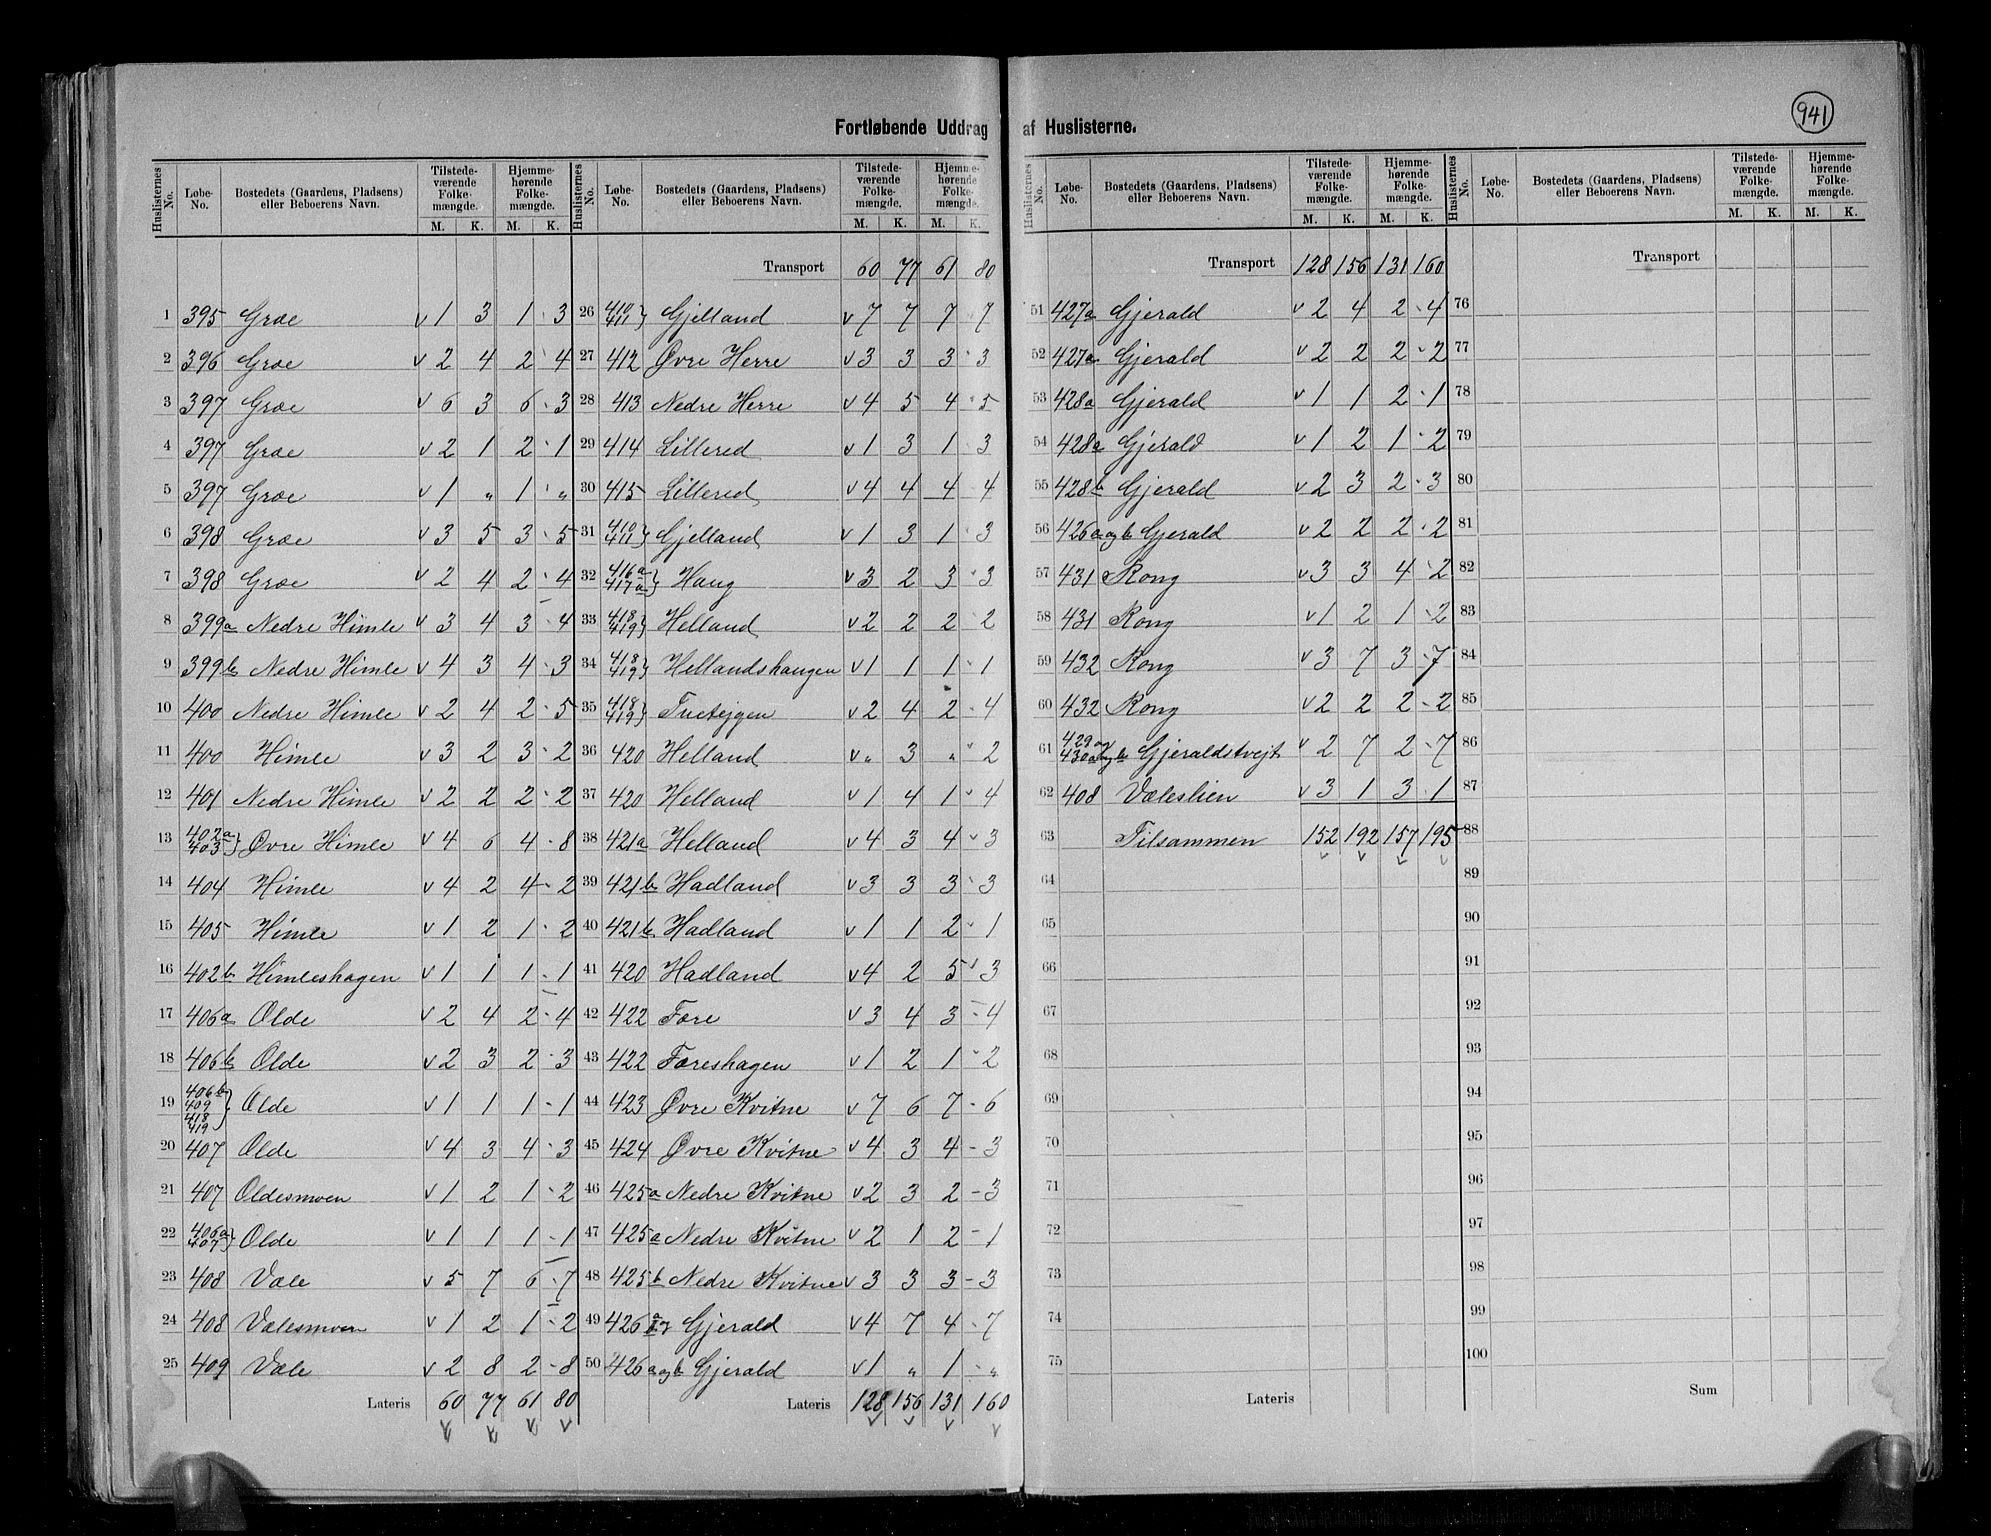 941
Fortløbende Uddrag af Huslisterne.
Huslisternes No. Løbe-No. Bostedets (Gaardens, Pladsen) eller Beboerens Navn. Tilstede-værende Folke-mængde. M. K. Hjemme-hørende Folke-mængde. M. K.
1 395 Groe v 1 3 1 3
2 396 Groe v 2 4 2 4
3 397 Groe v 6 3 6 3
4 397 Groe v 2 1 2 1
5 397 Groe v 1 „ 1 „
6 398 Groe v 3 5 3 5
7 398 Groe v 2 4 2 4
8 399a Nedre Himle v 3 4 3 4
9 399b Nedre Himle v 4 3 4 3
10 400 Nedre Himle v 2 4 2 5
11 400 Himle v 3 2 3 2
12 401 Nedre Himle v 2 2 2 2
13 402a 403 } Øvre Himle v 4 6 4 8
14 404 Himle v 4 2 4 2
15 405 Himle v 1 2 1 2
16 402b Himleshagen v 1 1 1 1
17 406a Olde v 2 4 2 4
18 406b Olde v 2 3 2 3
19 406b 409 418 419 } Olde v 1 1 1 1
20 407 Olde v 4 3 4 3
21 407 Oldesmoen v 1 2 1 2
22 406a 407 } Olde v 1 1 1 1
23 408 Væle v 5 7 6 7
24 408 Vælesmoen v 1 2 1 2
25 409 Væle v 2 8 2 8
Lateris 60 77 61 80
Huslisternes No. Løbe-No. Bostedets (Gaardens, Pladsen) eller Beboerens Navn. Tilstede-værende Folke-mængde. M. K. Hjemme-hørende Folke-mængde. M. K.
Transport 60 77 61 80
26 410 411 } Gjelland v 7 7 7 7
27 412 Øvre Herre v 3 3 3 3
28 413 Nedre Herre v 4 5 4 5
29 414 Lillered v 1 3 1 3
30 415 Lillered v 4 4 4 4
31 410 411 } Gjelland v 1 3 1 3
32 416a 417a } Haug v 3 2 3 3
33 418 419 } Helland v 2 2 2 2
34 418 419 } Hellandshaugen v 1 1 1 1
35 418 419 } v 2 4 2 4
36 420 Helland v „ 3 „ 2
37 420 Helland v 1 4 1 4
38 421a Helland v 4 3 4 3
39 421b Hadland v 3 3 3 3
40 421b Hadland v 1 1 2 1
41 420 Hadland v 4 2 5 3
42 422 Fære v 3 4 3 4
43 422 Færeshagen v 1 2 1 2
44 423 Øvre Kvitne v 7 6 7 6
45 424 Øvre Kvitne v 4 3 4 3
46 425a Nedre Kvitne v 2 3 2 3
47 425a Nedre Kvitne v 2 1 2 1
48 425b Nedre Kvitne v 3 3 3 3
49 426 Gjerald v 4 7 4 7
50 426 a og b Gjerald v 1 „ 1 „
Lateris 128 156 131 160
Huslisternes No. Løbe-No. Bostedets (Gaardens, Pladsen) eller Beboerens Navn. Tilstede-værende Folke-mængde. M. K. Hjemme-hørende Folke-mængde. M. K.
Transport 128 156 131 160
51 427a Gjerald v 2 4 2 4
52 427a Gjerald v 2 2 2 2
53 428a Gjerald v 1 1 2 1
54 428a Gjerald v 1 2 1 2
55 428b Gjerald v 2 3 2 3
56 426 a og b Gjerald v 2 2 2 2
57 431 Rong v 3 3 4 2
58 431 Rong v 1 2 1 2
59 432 Rong v 3 7 3 7
60 432 Rong v 2 2 2 2
61 429 og 430 a og b Gjeraldstvejt v 2 7 2 7
62 408 Væleslien v 3 1 3 1
63 Tilsammen 152 192 157 195
64
65
66
67
68
69
70
71
72
73
74
75
Lateris
Huslisternes No. Løbe-No. Bostedets (Gaardens, Pladsen) eller Beboerens Navn. Tilstede-værende Folke-mængde. M. K. Hjemme-hørende Folke-mængde. M. K.
Transport
76
77
78
79
80
81
82
83
84
85
86
87
88
89
90
91
92
93
94
95
96
97
98
99
100
Sum